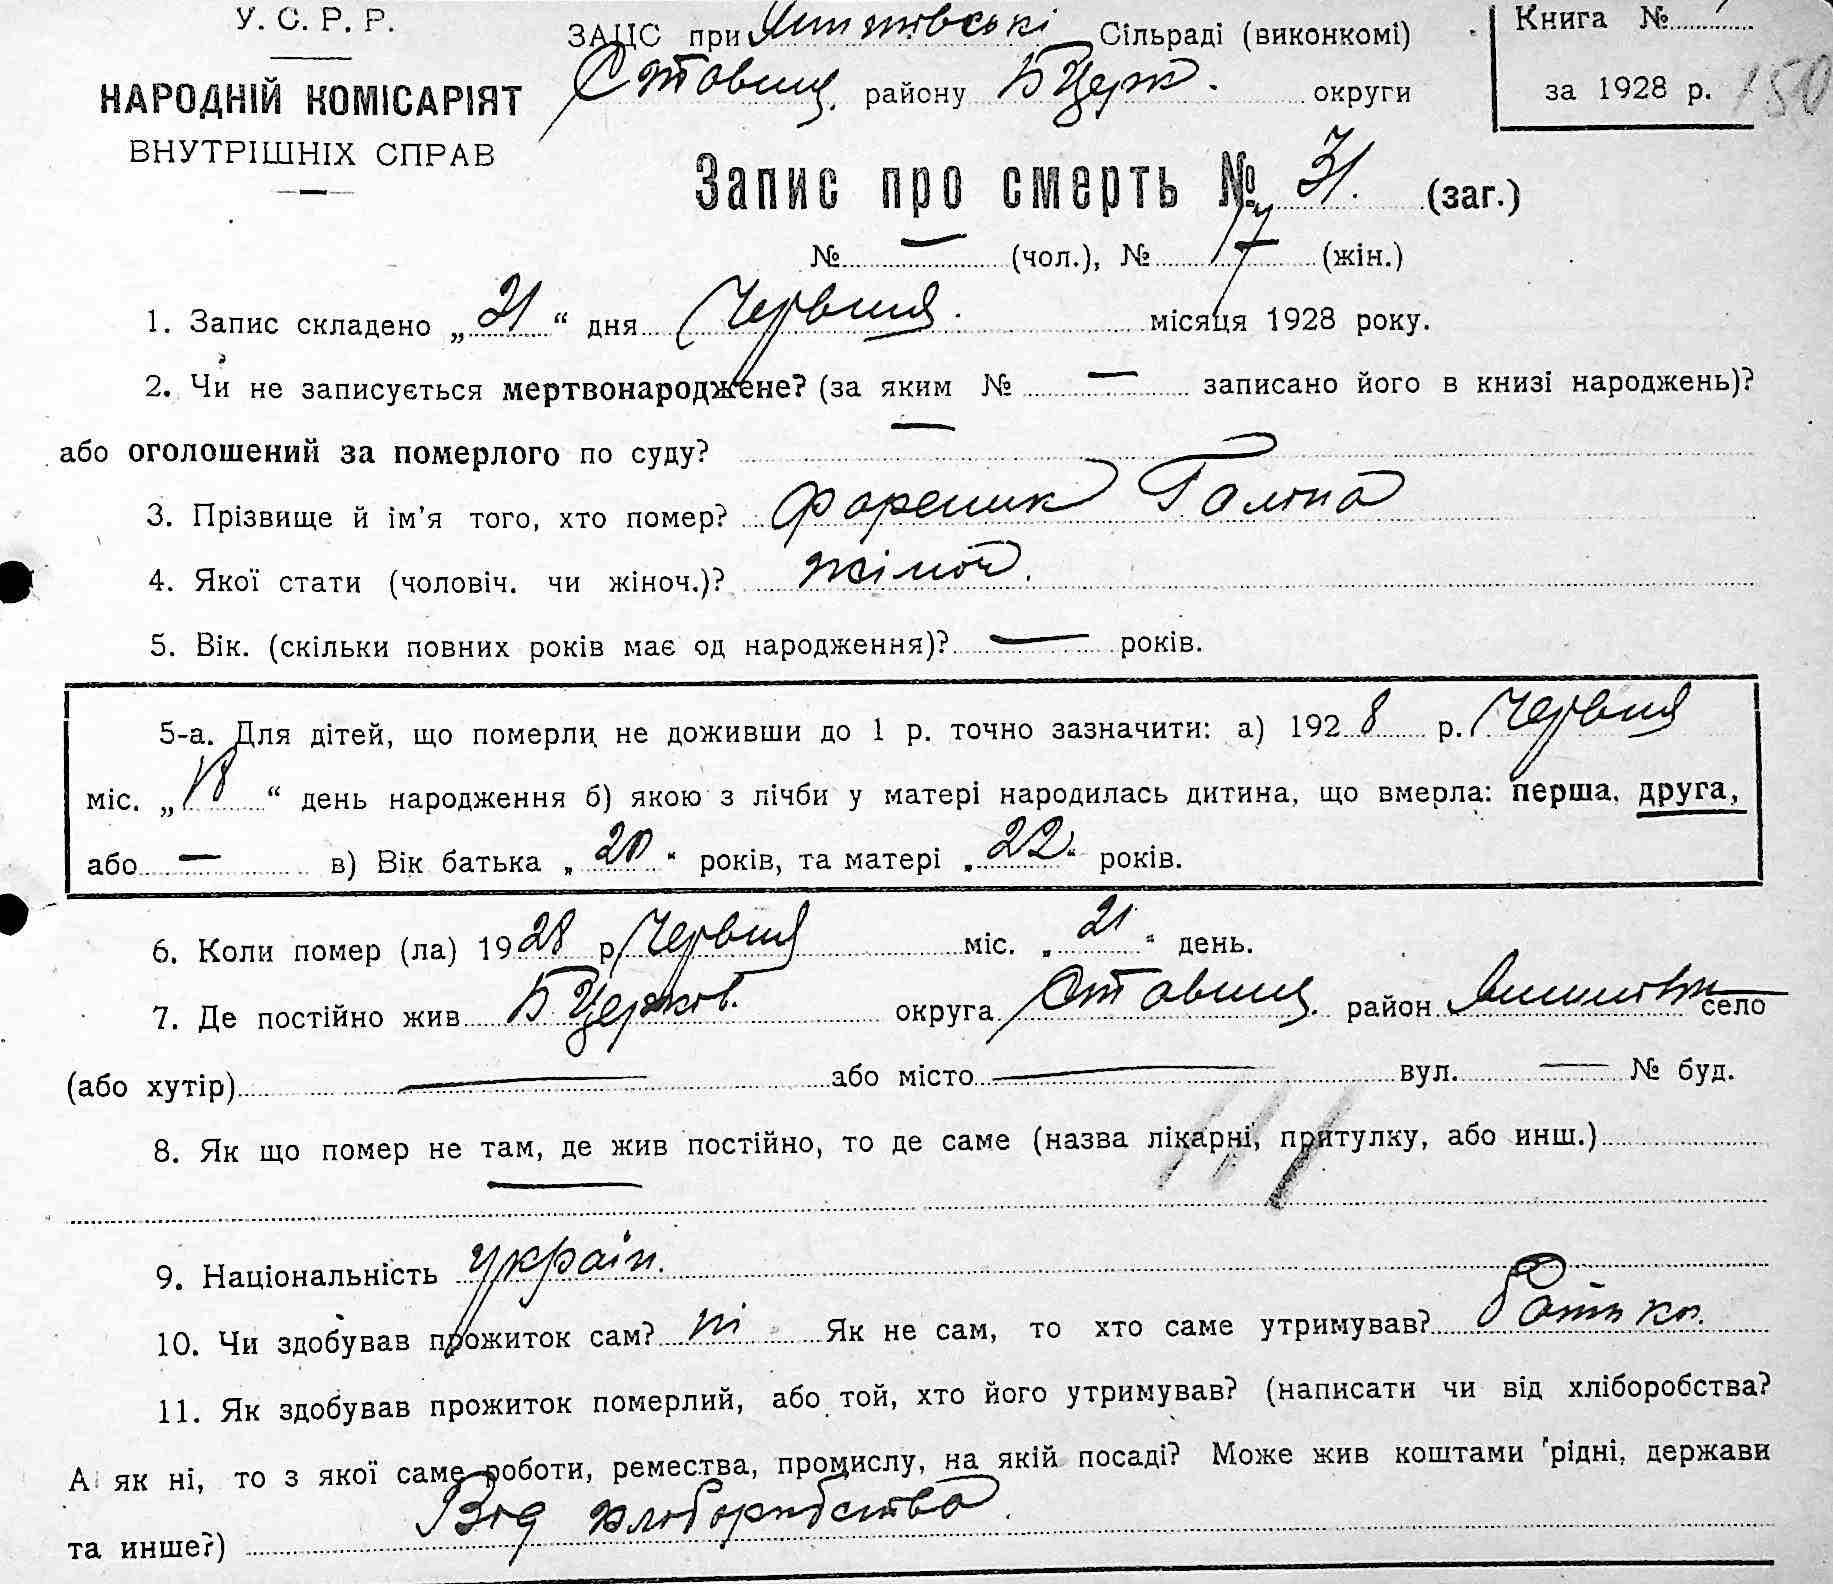 У. С. Р. Р.
НАРОДНІЙ КОМІСАРІЯТ
ВНУТРІШНІХ СПРАВ
ЗАЦС при Сільраді (виконкомі)
Ставищ. району БЦерк. округи
Книга №
за 1928 р. 150
Запис про смерть № 31. (заг.)
№ — (чол.), № 17 (жін.)
1. Запис складено „21“ дня Червня. місяця 1928 року.
2. Чи не записується мертвонароджене? (за яким № — записано його в книзі народжень)?
або оголошений за померлого по суду? —
3. Прізвище й ім'я того, хто помер? Фареник Галіна
4. Якої стати (чоловіч. чи жіноч.)? жіноч.
5. Вік. (скільки повних років має од народження)? — років.
5-а. Для дітей, що померли не доживши до 1 р. точно зазначити: а) 1928 р. Червня
міс. „18“ день народження б) якою з лічби у матері народилась дитина, що вмерла: перша, друга,
або — в) Вік батька „20“ років, та матері „22“ років.
6. Коли помер (ла) 1928 р. Червня міс. „21“ день.
7. Де постійно жив БЦерков. округа Ставищ. район село
(або хутір) — або місто — вул. — № буд.
8. Як що помер не там, де жив постійно, то де саме (назва лікарні, притулку, або инш.)
—
9. Національність україн.
10. Чи здобував прожиток сам? ні Як не сам, то хто саме утримував? батьки.
11. Як здобував прожиток померлий, або той, хто його утримував? (написати чи від хліборобства?
А як ні, то з якої саме роботи, ремества, промислу, на якій посаді? Може жив коштами рідні, держави
та инше?) Від хліборобства.